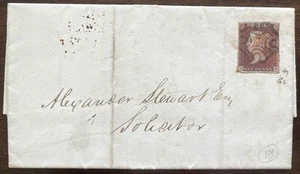 ONE PENNY
Alexander Stewart Esq
Solicitor